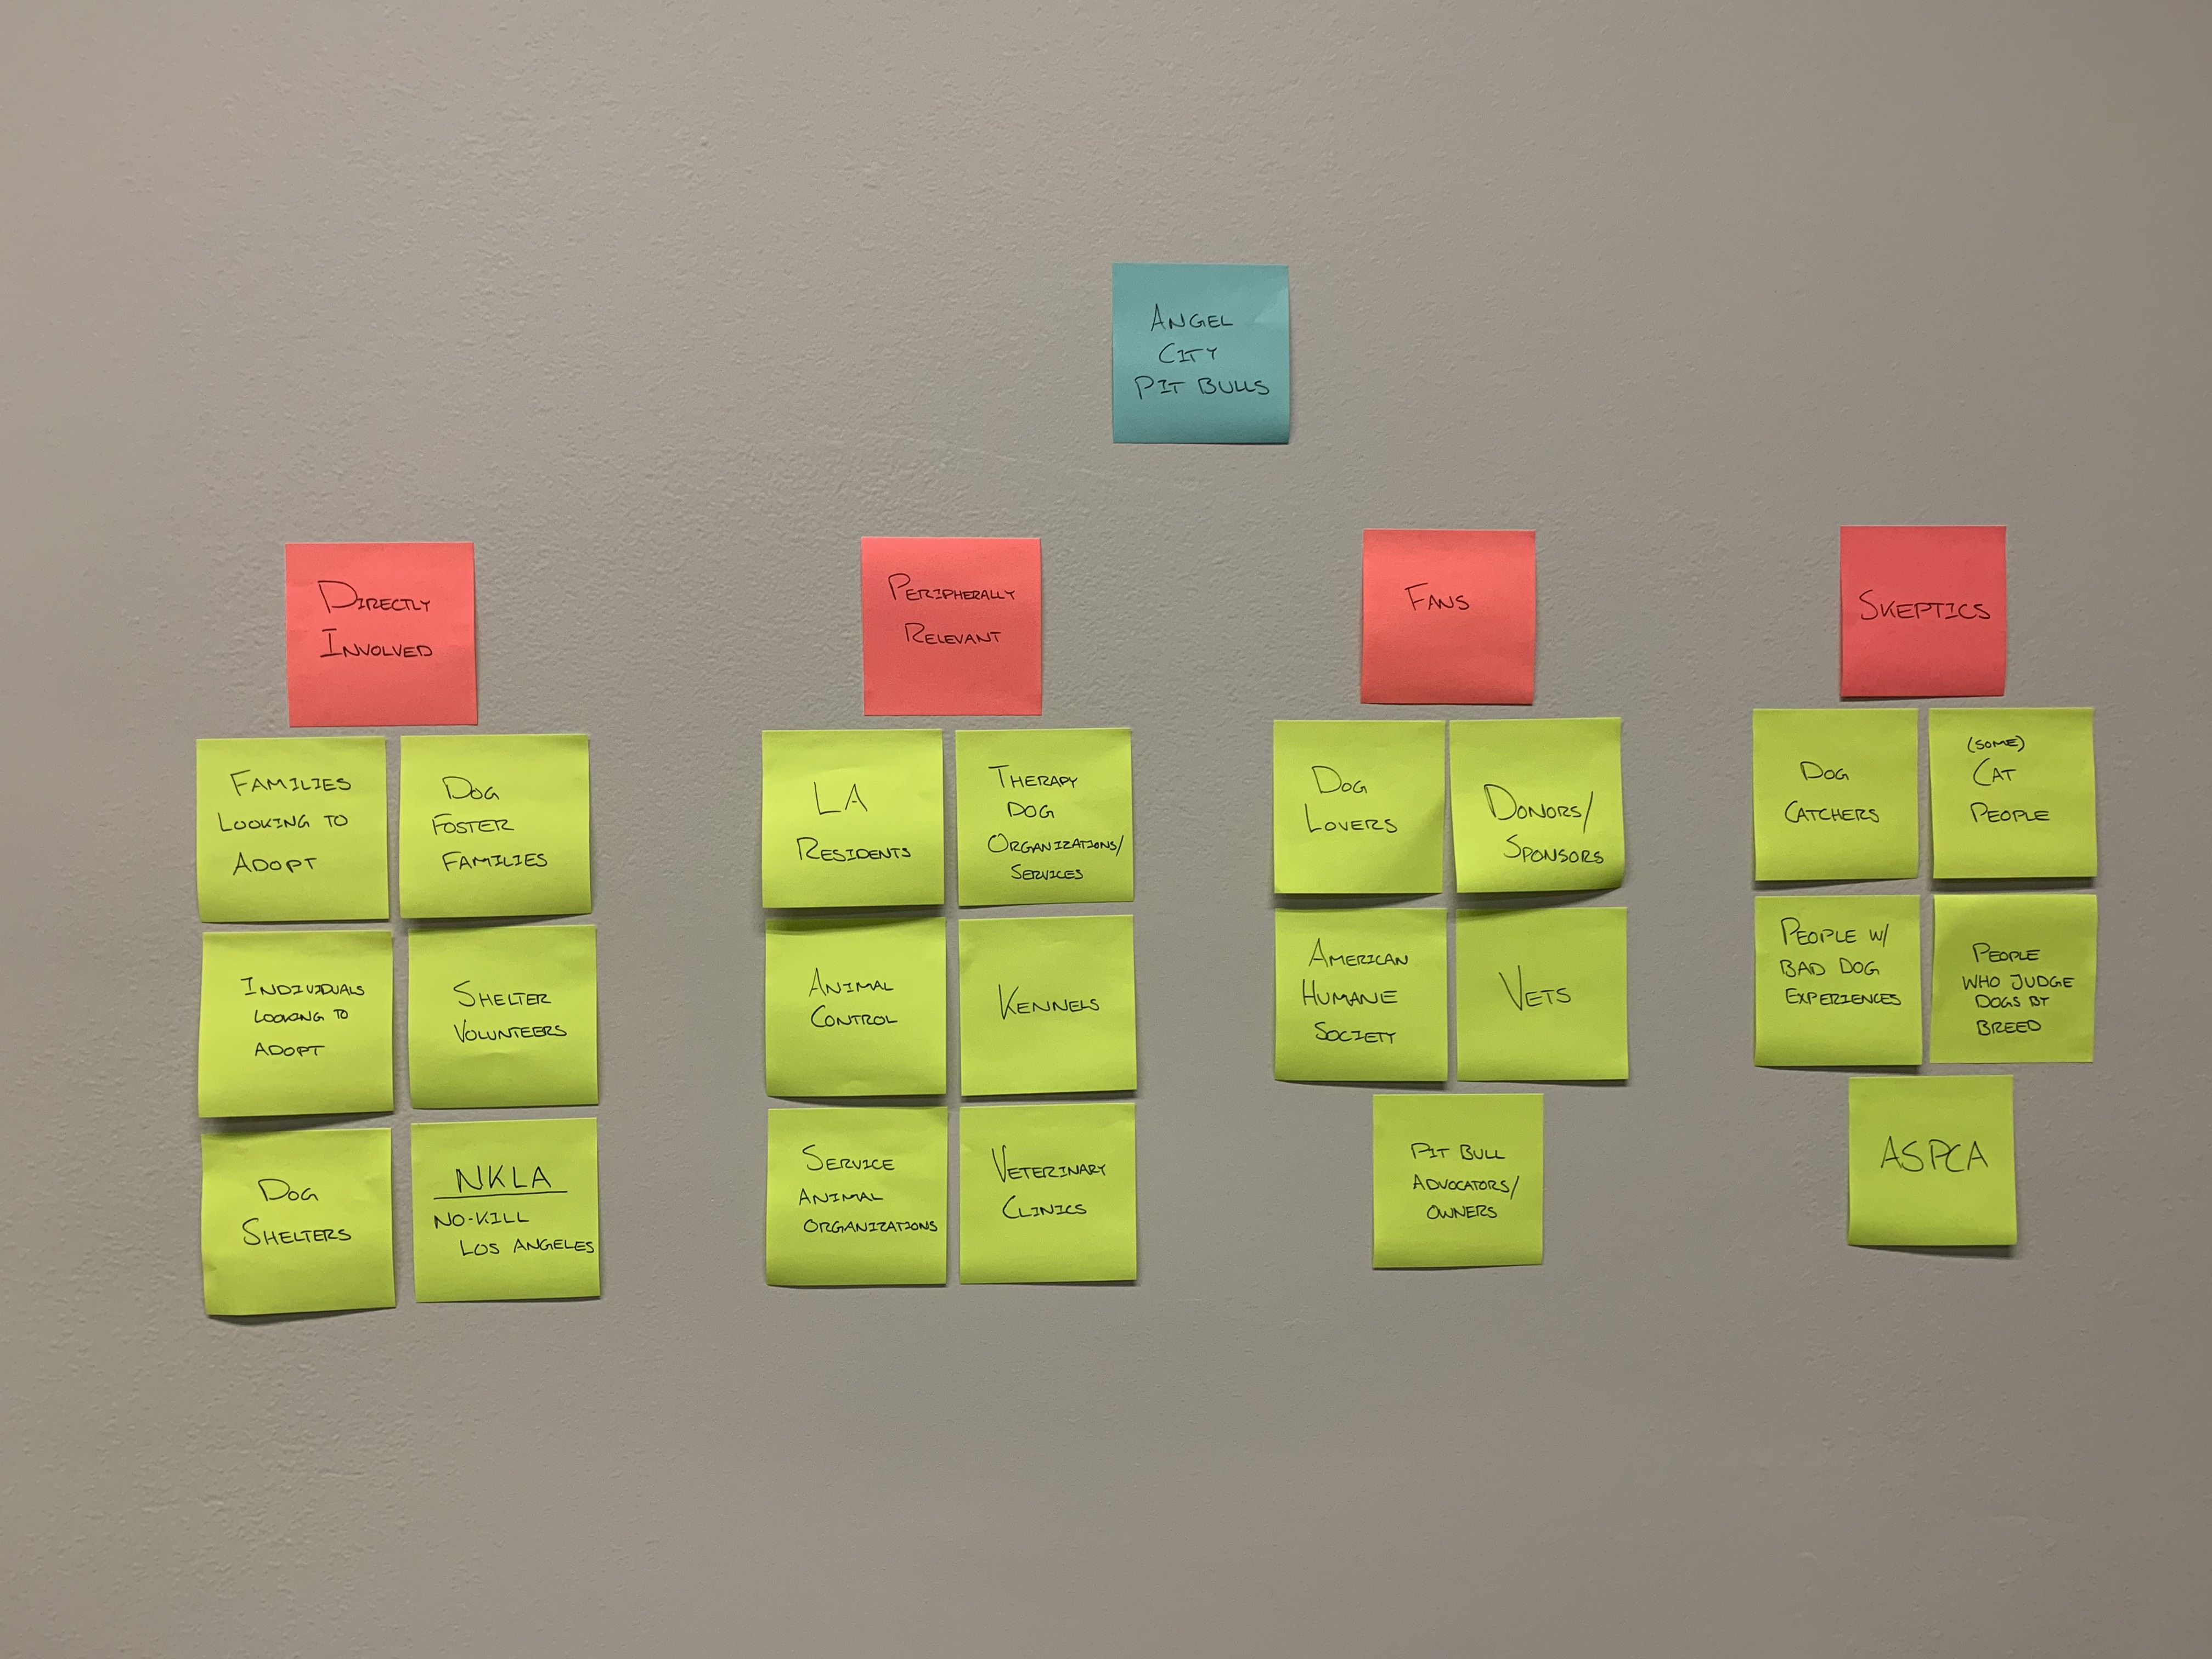 ANGEL
CITY
PIT BULLS
DIRECTLY
INVOLVED
FAMILIES
LOOKING TO
ADOPT
DOG
FOSTER
FAMILIES
INDIVIDUALS
LOOKING TO
ADOPT
SHELTER
VOLUNTEERS
DOG
SHELTERS
NKLA
NO-KILL
LOS ANGELES
PERIPHERALLY
RELEVANT
LA
RESIDENTS
THERAPY
DOG
ORGANIZATIONS/
SERVICES
ANIMAL
CONTROL
KENNELS
SERVICE
ANIMAL
ORGANIZATIONS
VETERINARY
CLINICS
FANS
DOG
LOVERS
DONORS/
SPONSORS
AMERICAN
HUMANE
SOCIETY
VETS
PIT BULL
ADVOCATORS/
OWNERS
SKEPTICS
DOG
CATCHERS
(SOME)
CAT
PEOPLE
PEOPLE W/
BAD DOG
EXPERIENCES
PEOPLE
WHO JUDGE
DOGS BY
BREED
ASPCA